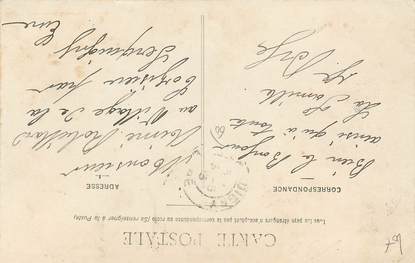 CARTE POSTALE
Tous les pays étrangers n'acceptent pas la correspondance au recto (Se renseigner à la Poste)
CORRESPONDANCE
ADRESSE
Bien le Bonjour
ainsi qu'à toute
La famille
Monsieur
Aimé
au Village de la
par
Serquigny
Eure